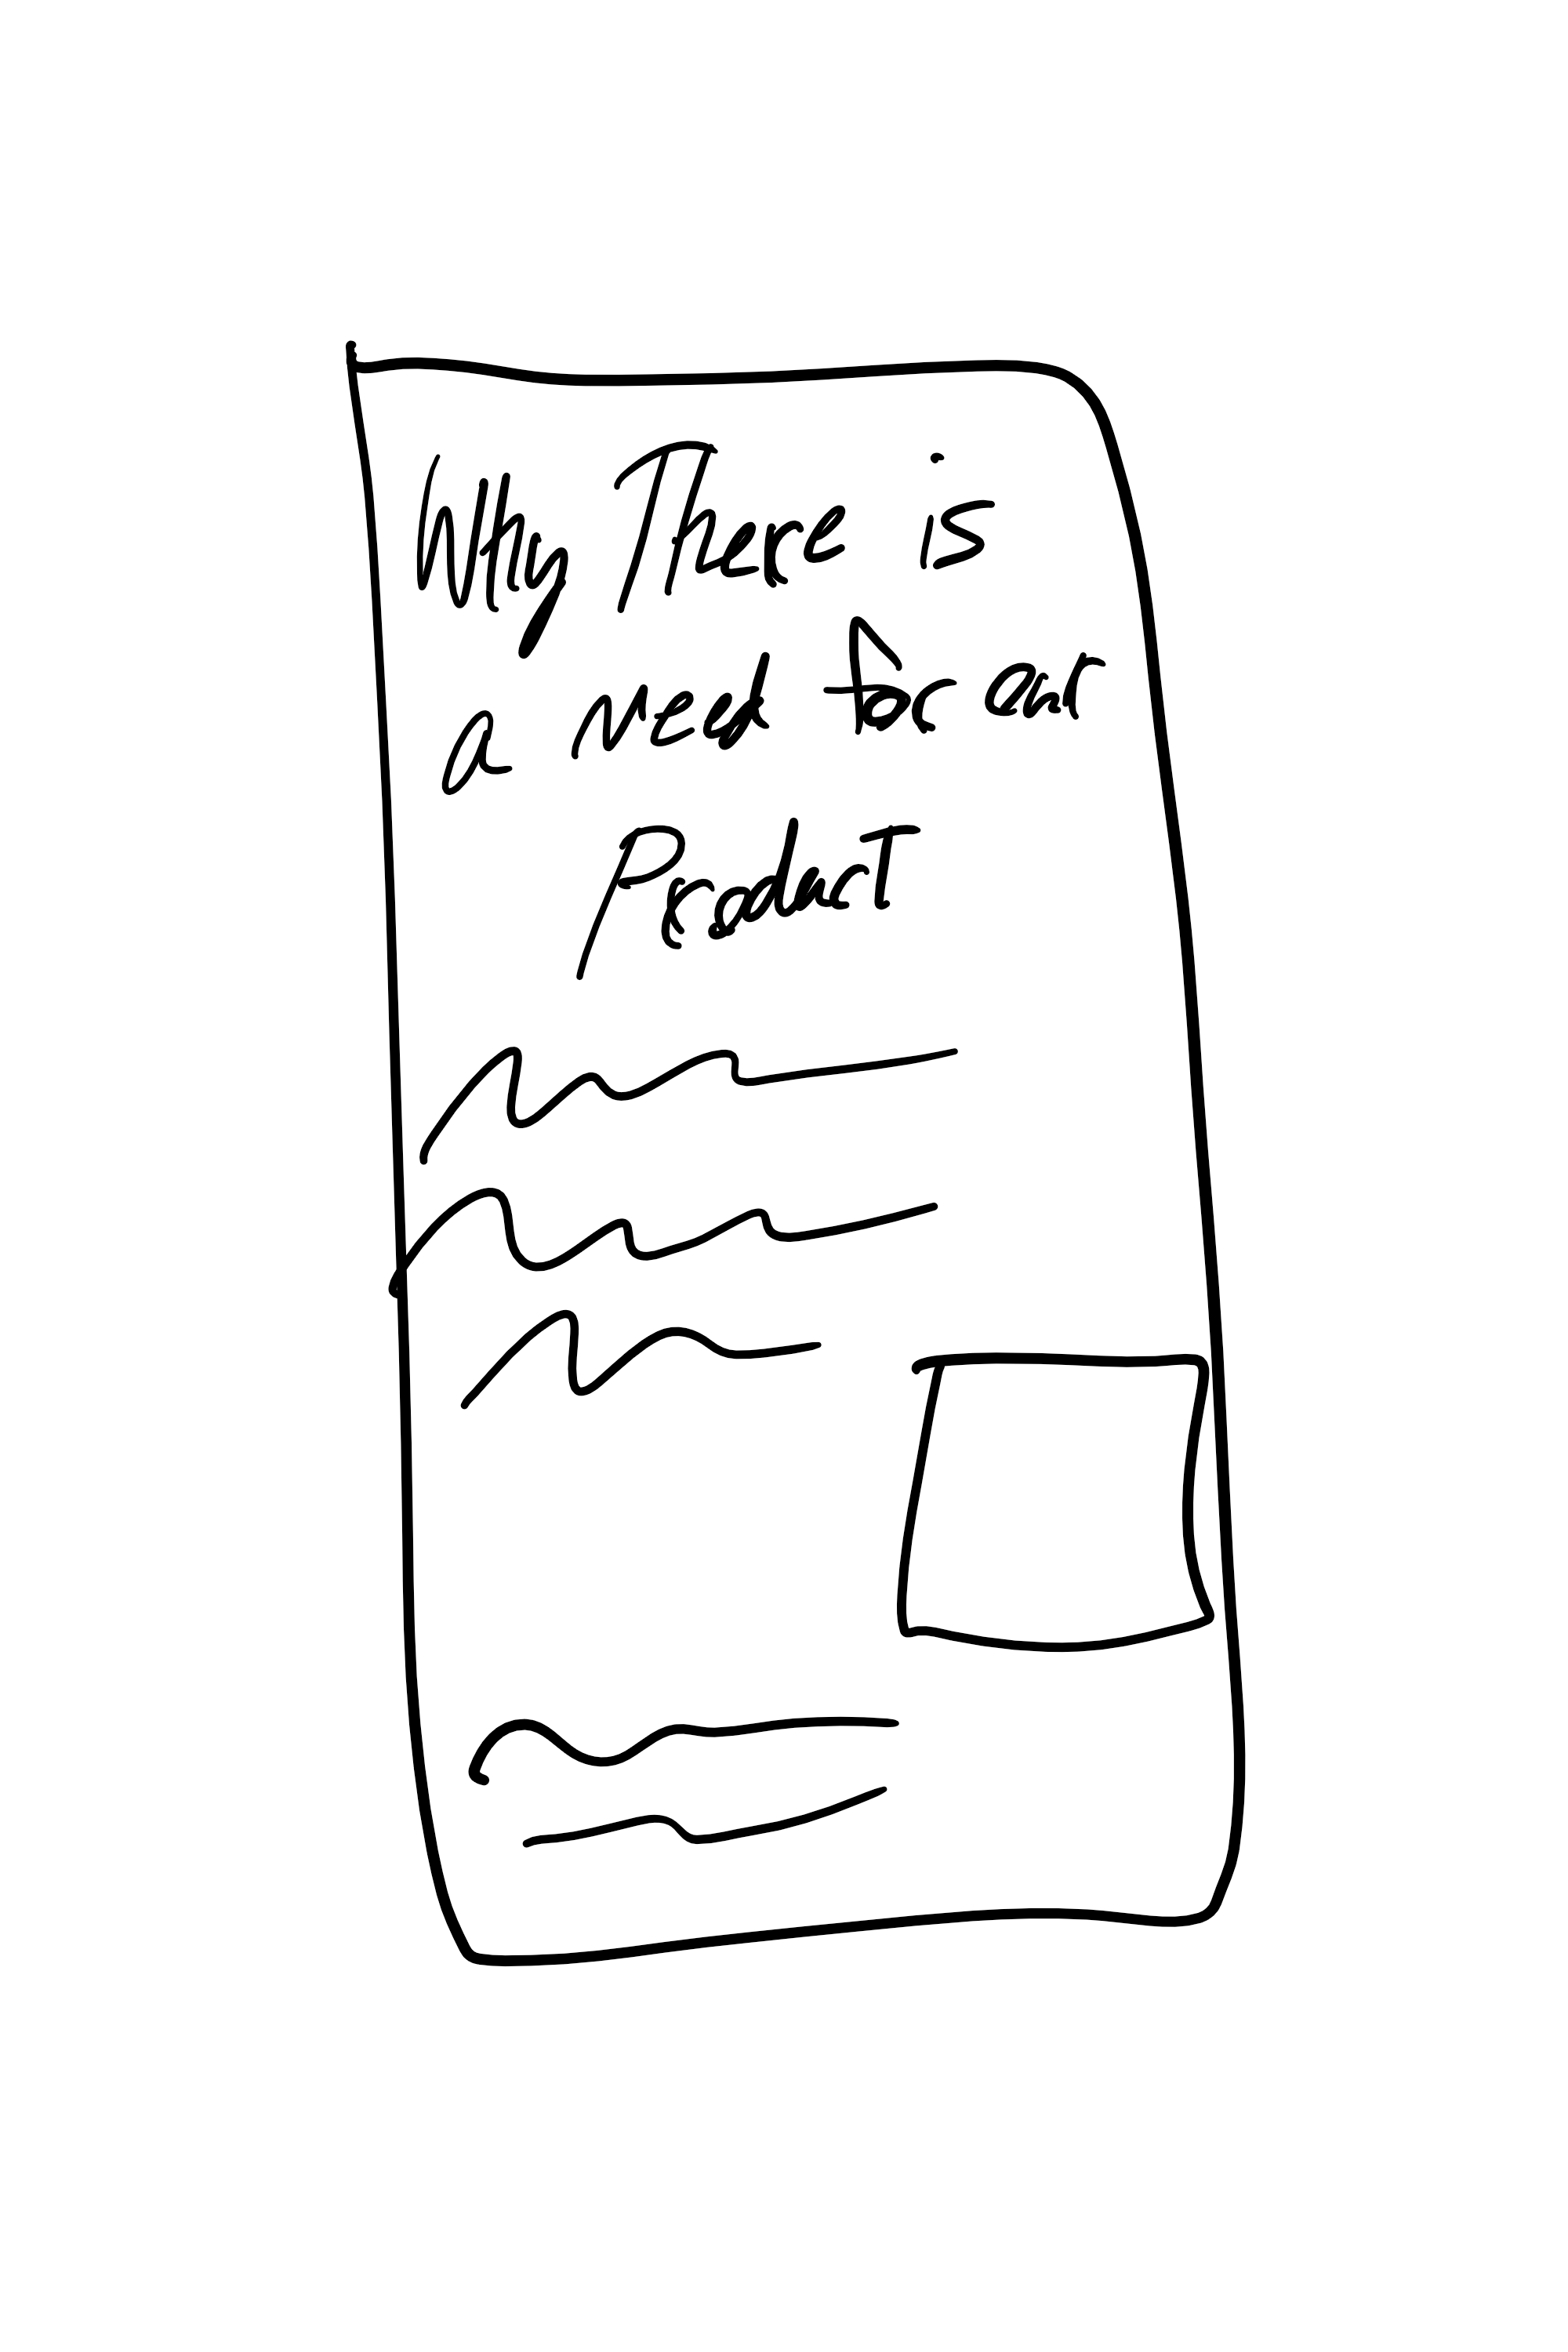 Why There is
a need for our
Product